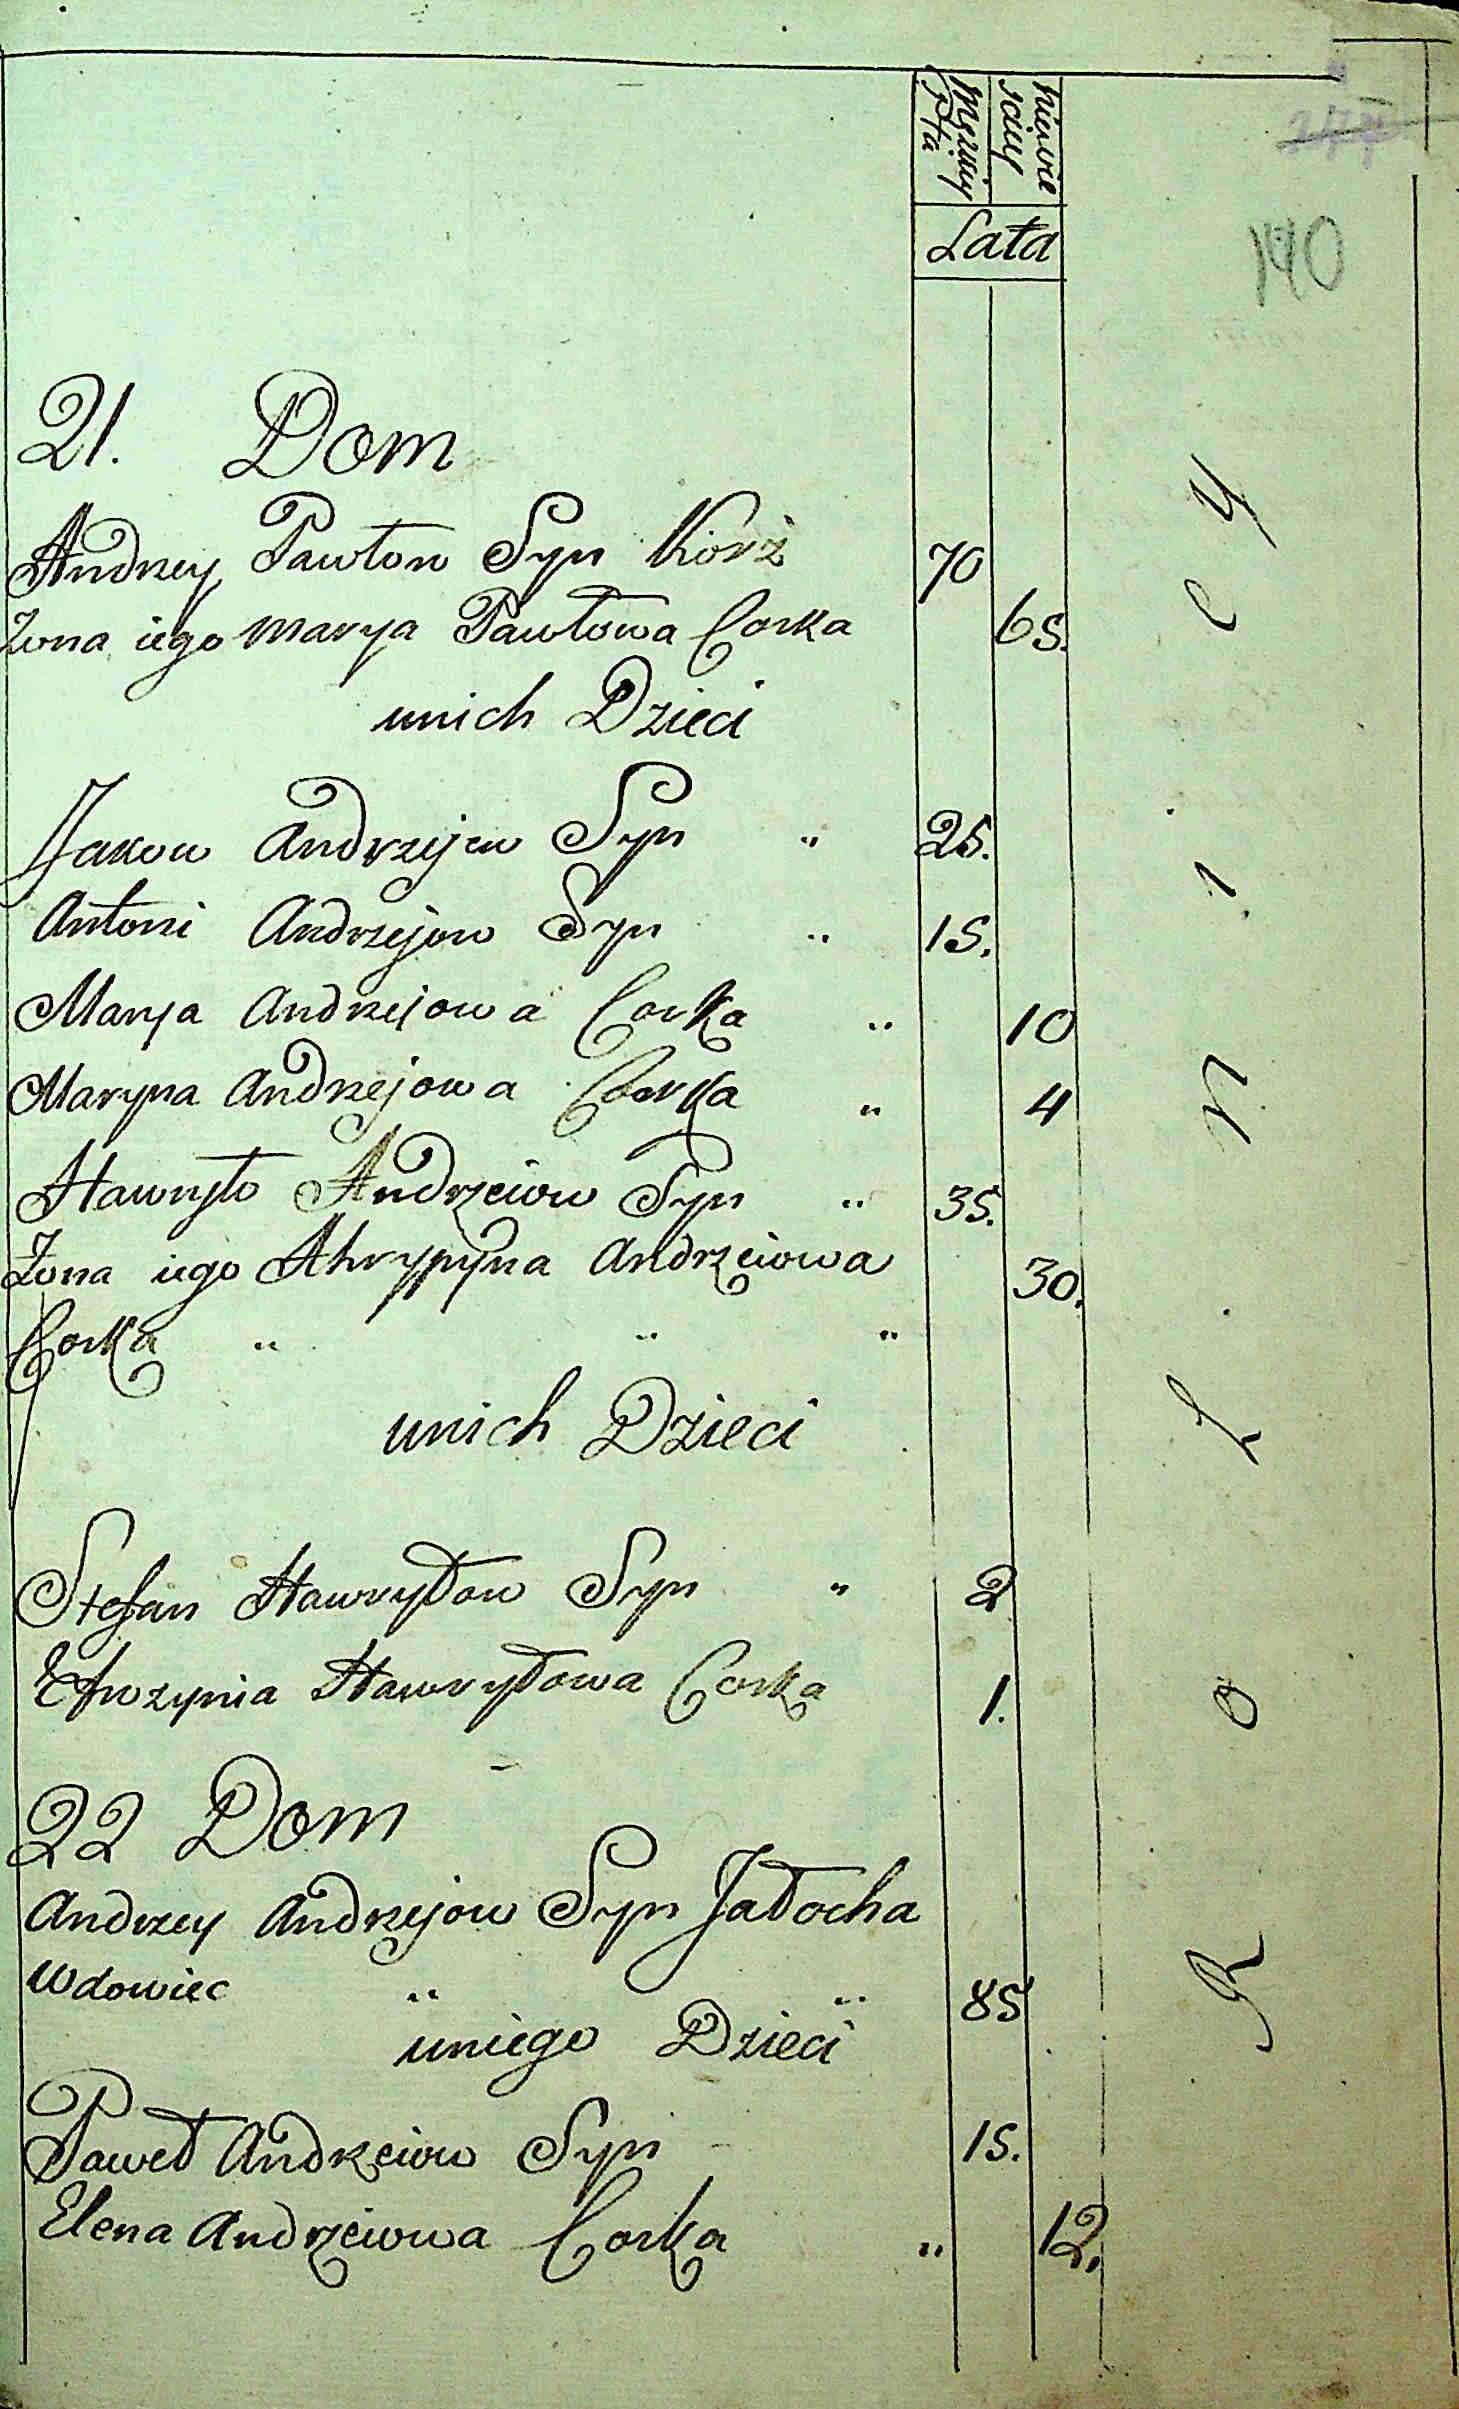 Męzkiy Płta
Niewie sciey
Lata
140
21. Dom
Andrzey Pawłow Syn Korż 70
Zona iego Marya Pawłowa Corka 65.
unich Dzieci
Jakow Andrzejew Syn " 25.
Antoni Andrzejow Syn " 15.
Marya Andrzejowa Corka " 10
Maryna Andrzejowa Corka " 4
Hawryło Andrzeiow Syn " 35.
Żona iego Ahrypyna Andrzeiowa 30.
Corka " " "
unich Dzieci
Stefan Hawryłow Syn " 2
Efrozynia Hawryłowa Corka 1.
22 Dom
Andrzey Andrzejow Syn Jałocha
Wdowiec " " 85
uniego Dzieci
Paweł Andrzeiow Syn 15.
Elena Andrzeiowa Corka " 12.
Rolnicy